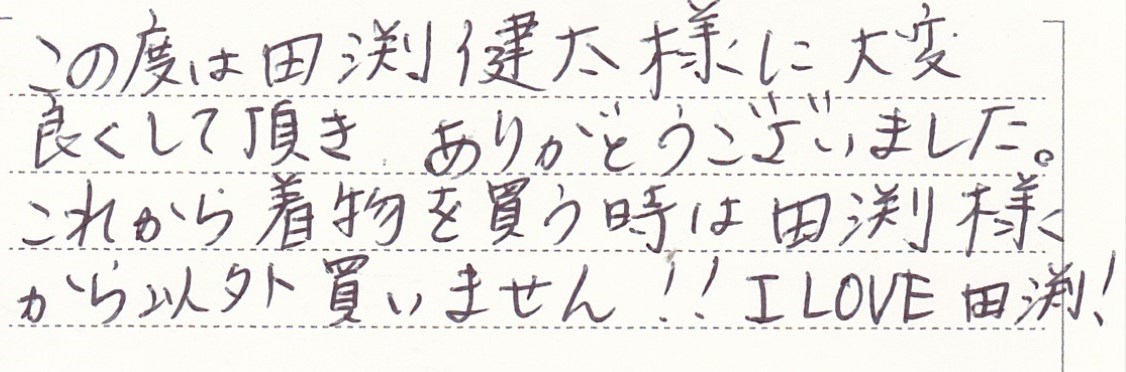 この度は田渕健太様に大変
良くして頂き ありがとうございました。
これから着物を買う時は田渕様
から以外買いません!! I LOVE 田渕!